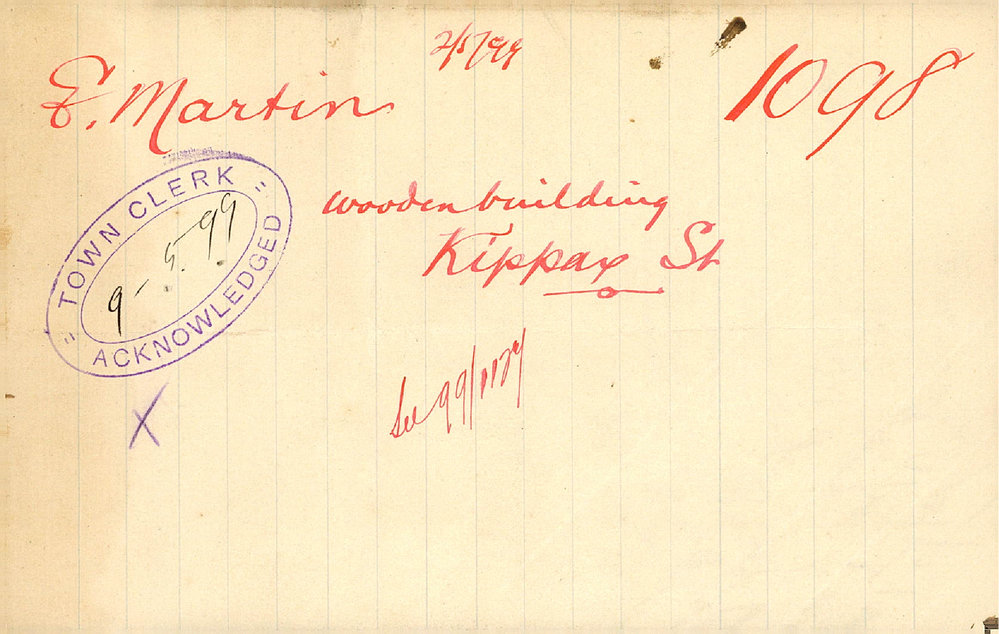 2/5/99
E. Martin
1098
" TOWN CLERK "
9-5.99
ACKNOWLEDGED
wooden building
Kippax St
See 99/1127
X